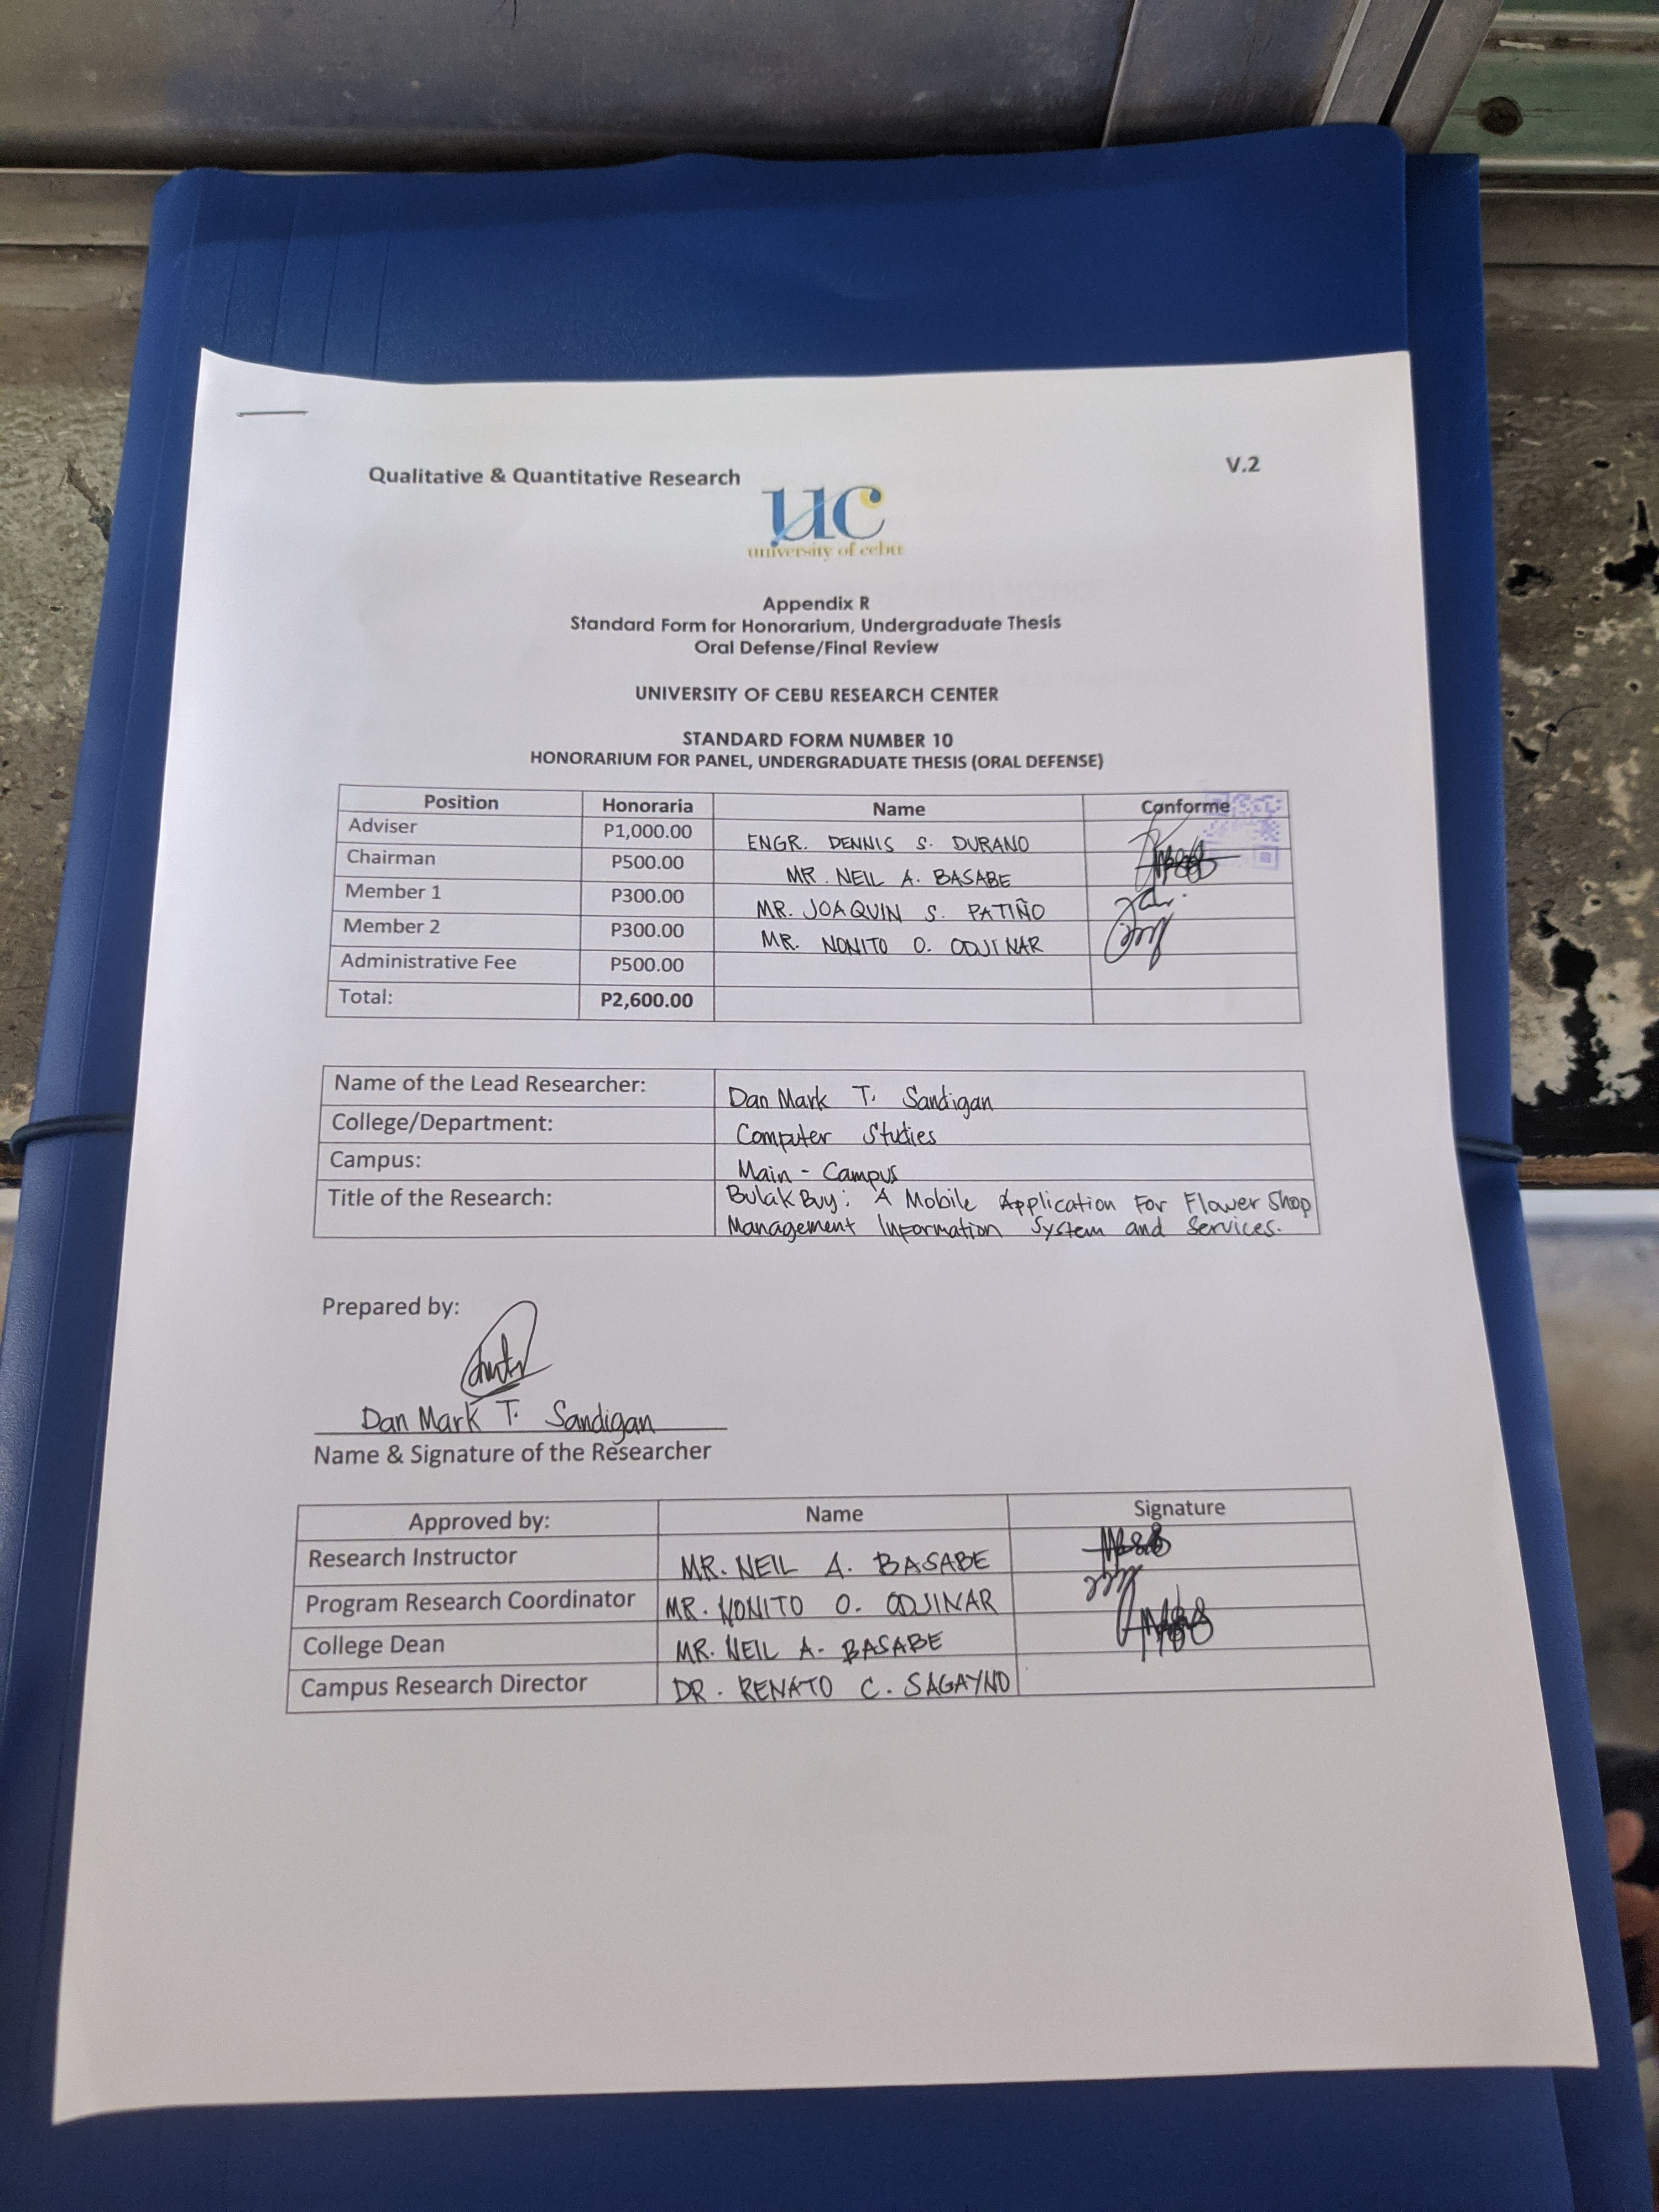 Qualitative & Quantitative Research V.2
uc
university of cebu
Appendix R
Standard Form for Honorarium, Undergraduate Thesis
Oral Defense/Final Review
UNIVERSITY OF CEBU RESEARCH CENTER
STANDARD FORM NUMBER 10
HONORARIUM FOR PANEL, UNDERGRADUATE THESIS (ORAL DEFENSE)
Position Honoraria Name Conforme
Adviser P1,000.00 ENGR. DENNIS S. DURANO
Chairman P500.00 MR. NEIL A. BASABE
Member 1 P300.00 MR. JOAQUIN S. PATIÑO
Member 2 P300.00 MR. NONITO O. ODJINAR
Administrative Fee P500.00
Total: P2,600.00
Name of the Lead Researcher: Dan Mark T. Sandigan
College/Department: Computer Studies
Campus: Main - Campus
Title of the Research: BulakBuy: A Mobile Application For Flower Shop
Management Information System and Services.
Prepared by:
Dan Mark T. Sandigan
Name & Signature of the Researcher
Approved by: Name Signature
Research Instructor MR. NEIL A. BASABE
Program Research Coordinator MR. NONITO O. ODJINAR
College Dean MR. NEIL A. BASABE
Campus Research Director DR. RENATO C. SAGAYNO